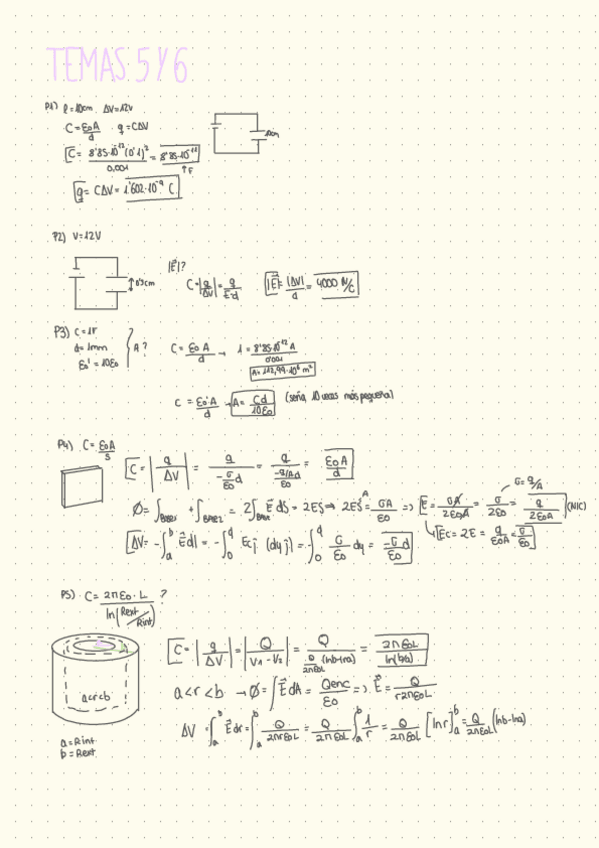 TEMAS 5 Y 6
P1) l=10cm ΔV=12V
C=ε0A/d q=CΔV
C= 8'85·10^-12(0'1)^2/0,001 = 8'85·10^-11 F
q= CΔV= 1'602·10^-9 C
P2) V=12V
0'3cm
|E⃗|?
C=|q/ΔV|=q/E·d |E⃗|=|ΔV|/d = 4000 N/C
P3) C=1F
d=1mm
ε0'=10ε0
A?
C=ε0A/d → 1=8'85·10^-12 A/0'001
A=112,99·10^6 m²
C=ε0'A/d → A=Cd/10ε0 (sería 10 veces más pequeña)
P4) C=ε0A/s
C=|q/ΔV|= q/(-σ/ε0 d) = q/(-q/A d/ε0) = ε0A/d
Ø=∫BASE1 + ∫BASE2 = 2∫BASE E⃗dS = 2ES → 2ES=σA/ε0 => E=σA/2ε0A = σ/2ε0 = q/2ε0A (N/C)
σ=q/A
Ec=2E=q/ε0A=σ/ε0
ΔV=-∫a^b E⃗dl = -∫0^d Ecj (dyj)=-∫0^d σ/ε0 dy = -σ/ε0 d
P5) C=2πε0·L/ln(Rext/Rint) ?
a<r<b
a=Rint
b=Rext
C=|q/ΔV|=|Q/V1-V2|=Q/(Q/2πε0L (lnb-lna))=2πε0L/ln(b/a)
a<r<b → Ø=∫E⃗dA=Qenc/ε0 => E⃗=Q/r2πε0L
ΔV=∫a^b E⃗dr=∫a^b Q/2πrε0L=Q/2πε0L ∫a^b 1/r=Q/2πε0L [lnr]a^b=Q/2πε0L (lnb-lna)